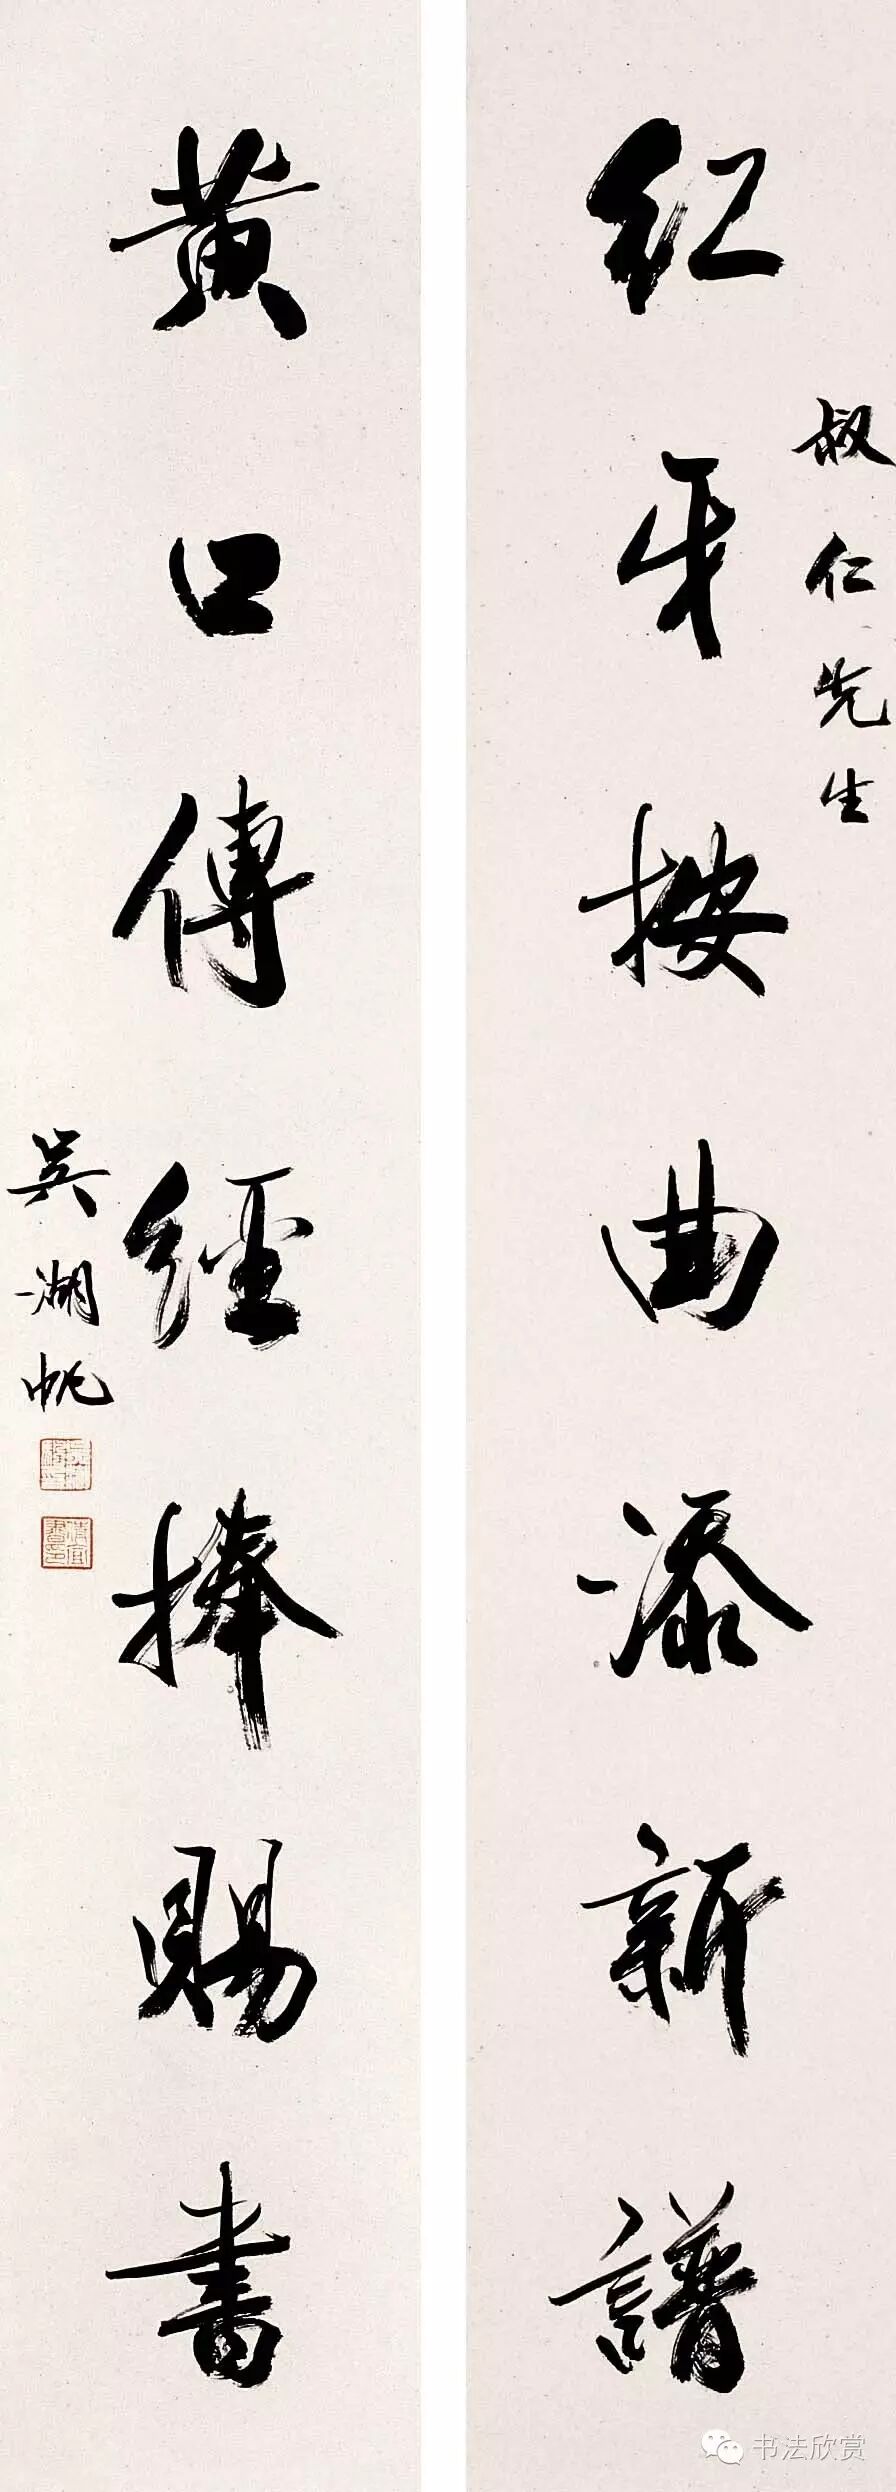 紅牙按曲添新譜
叔仁先生
黄口傳經捧賜書
吴湖帆
书法欣赏